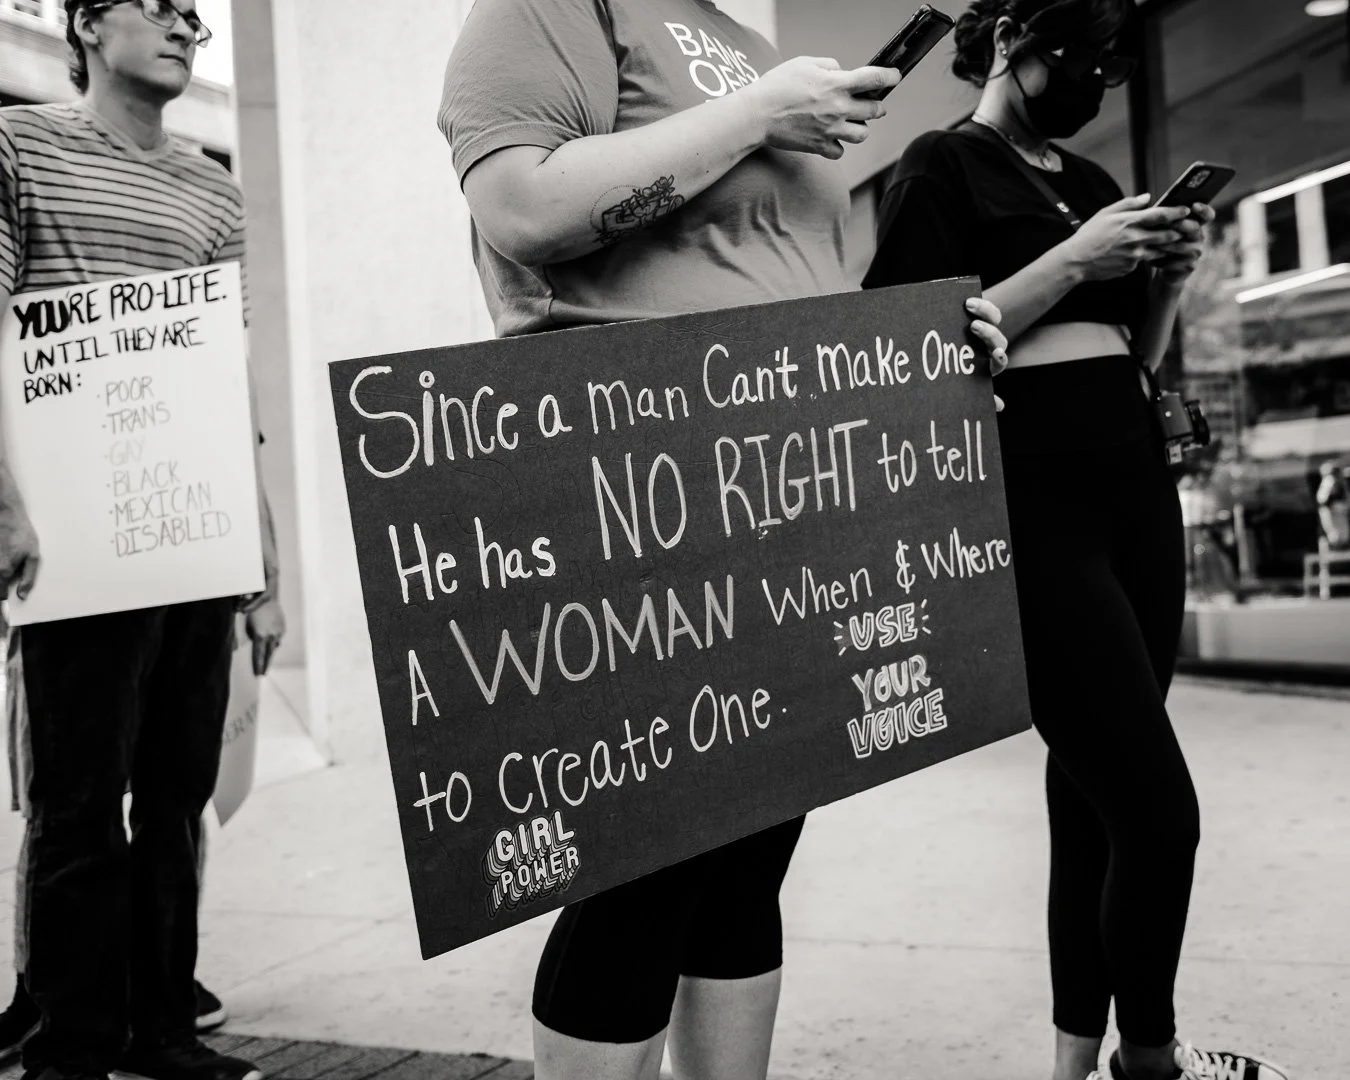 YOU'RE PRO-LIFE.
UNTIL THEY ARE
BORN:
·POOR
·TRANS
·GAY
·BLACK
·MEXICAN
·DISABLED
BANS
OFF
Since a man Can't make One
He has NO RIGHT to tell
A WOMAN When & Where
to create One.
USE
YOUR
VOICE
GIRL
POWER